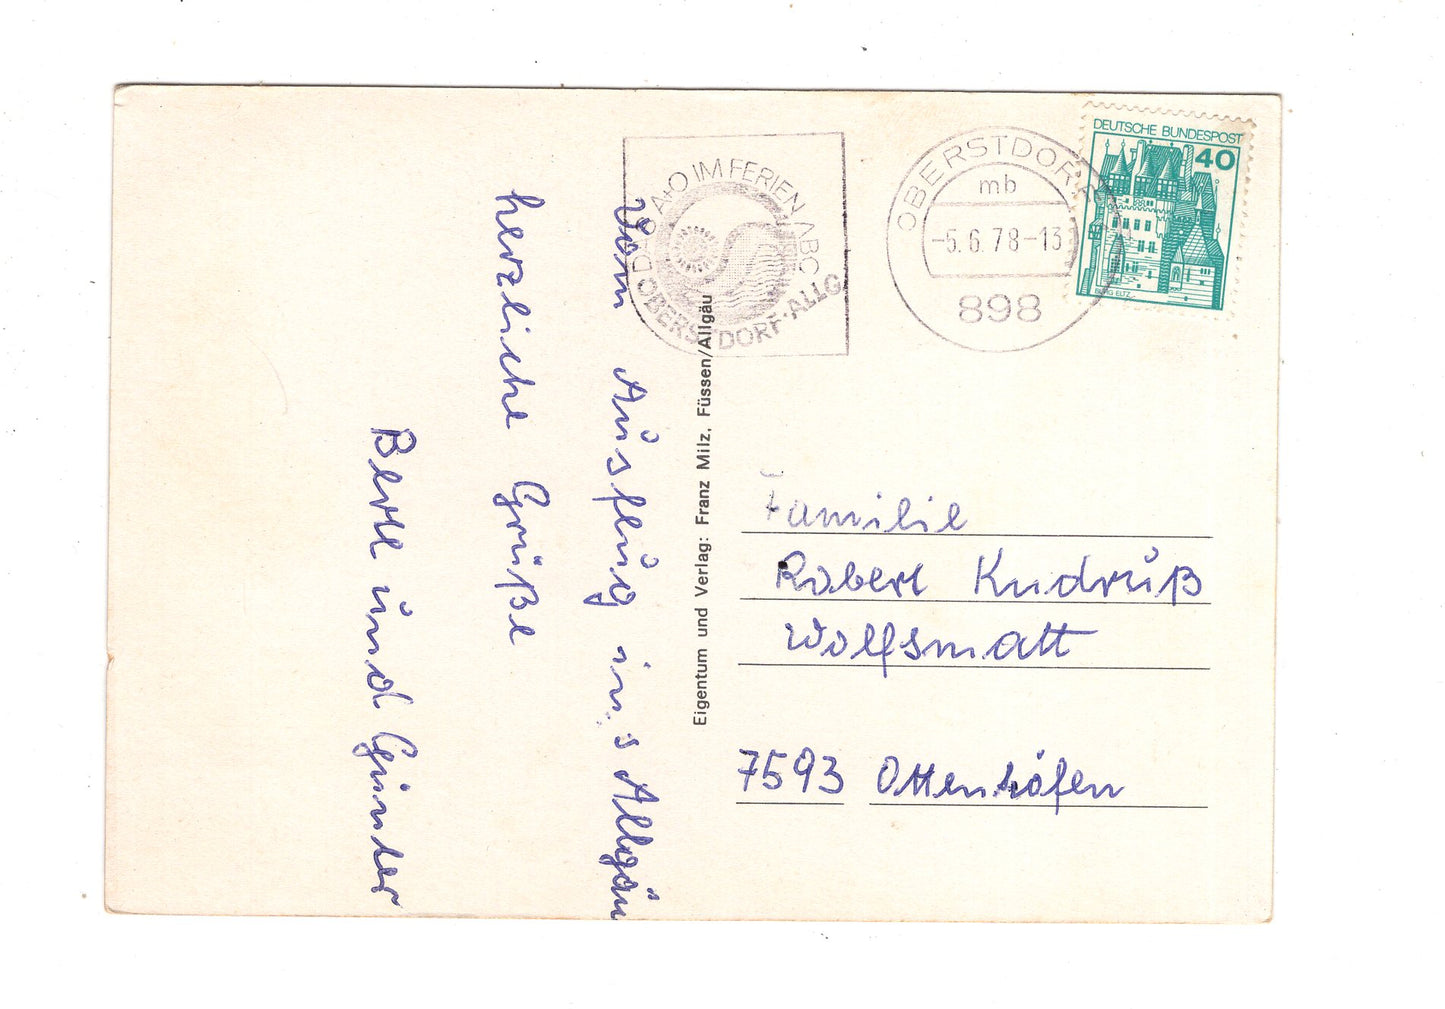 Vom Ausflug ins Allgäu
herzliche Grüße
Bertl und Günter
Eigentum und Verlag: Franz Milz, Füssen/Allgäu
DAS A+O IM FERIEN ABC
OBERSTDORF·ALLG
OBERSTDORF
mb
-5.6.78-13
898
DEUTSCHE BUNDESPOST
40
BURG ELTZ
Familie
Robert Kudruß
Wolfsmatt
7593 Ottenhöfen